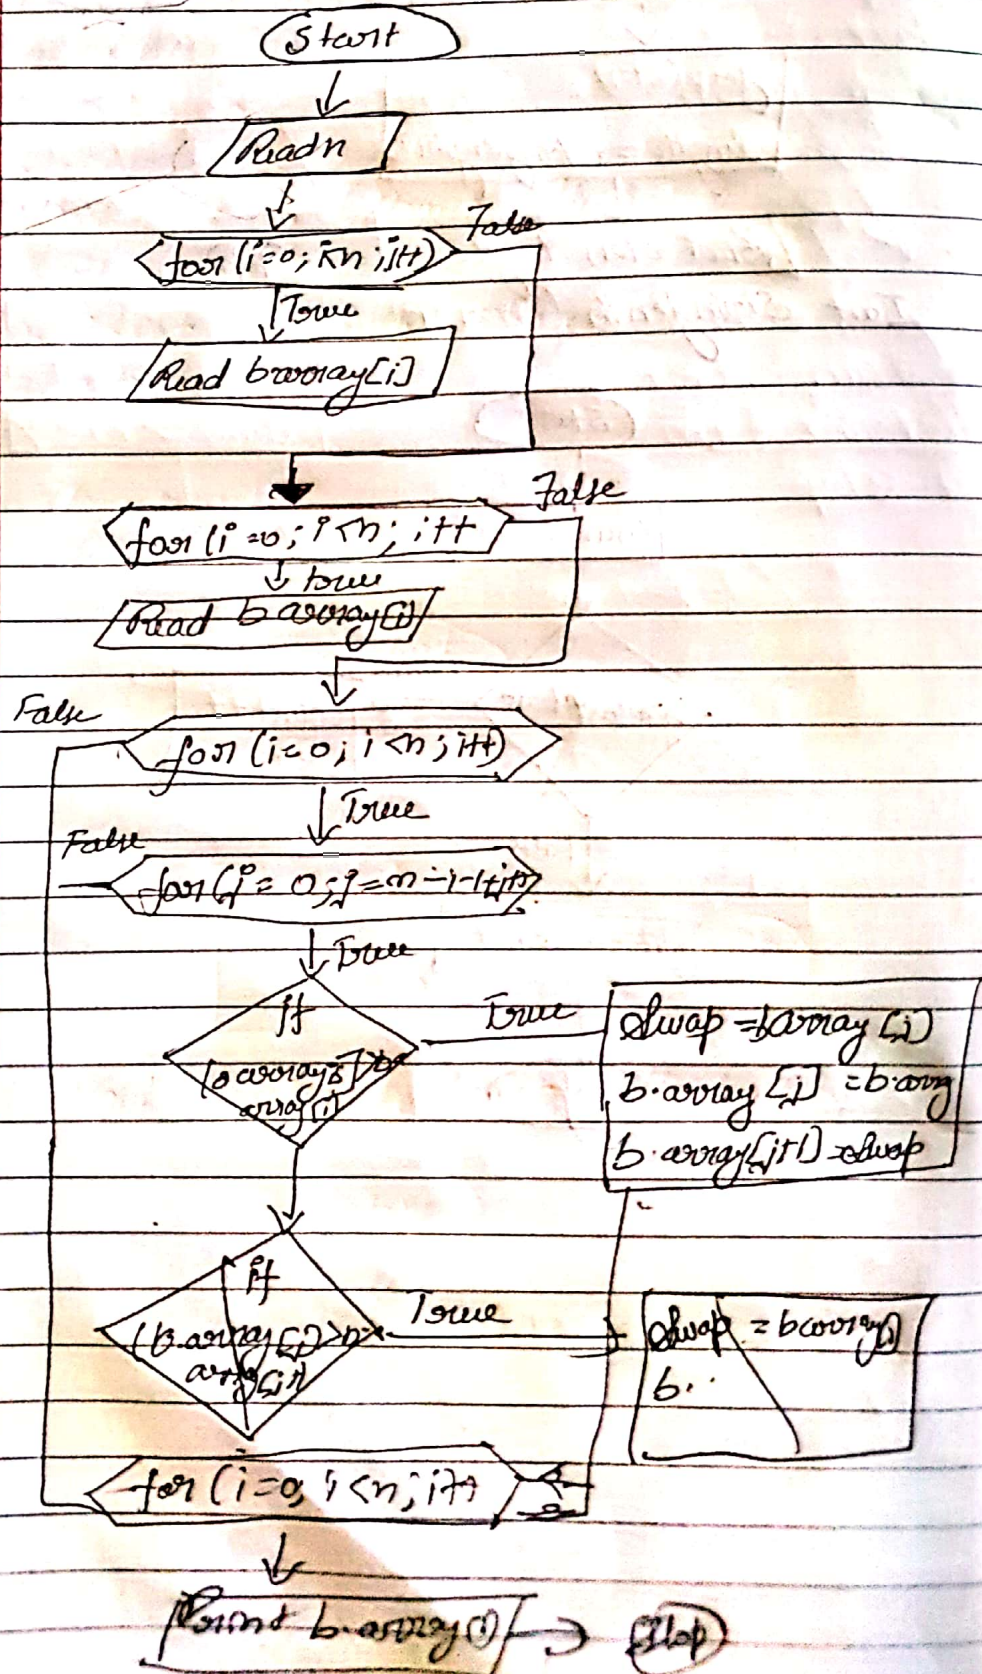 Start
Read n
for (i=0; i<n; i++)
False
True
Read barray[i]
False
for (i=0; i<n; i++
true
Read b array[i]
False
for (i=0; i<n; i++)
True
False
for (j= 0; j=n-i-1; j++)
True
If
True
array[j]
Swap =barray[j]
b.array[j] =b.arry
b.array[j+1)=Swap
if
True
(b.array[j]>b
array[j+1
Swap = barray[j]
b..
for (i=0; i<n; i++
Print b.array(i)
Stop